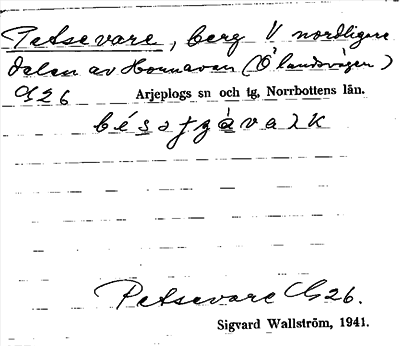 Petsevare, berg V nordligare
delen av Hornavan (Ölandsvägen)
G26 Arjeplogs sn och tg, Norrbottens län.
Petsevare G26.
Sigvard Wallström, 1941.